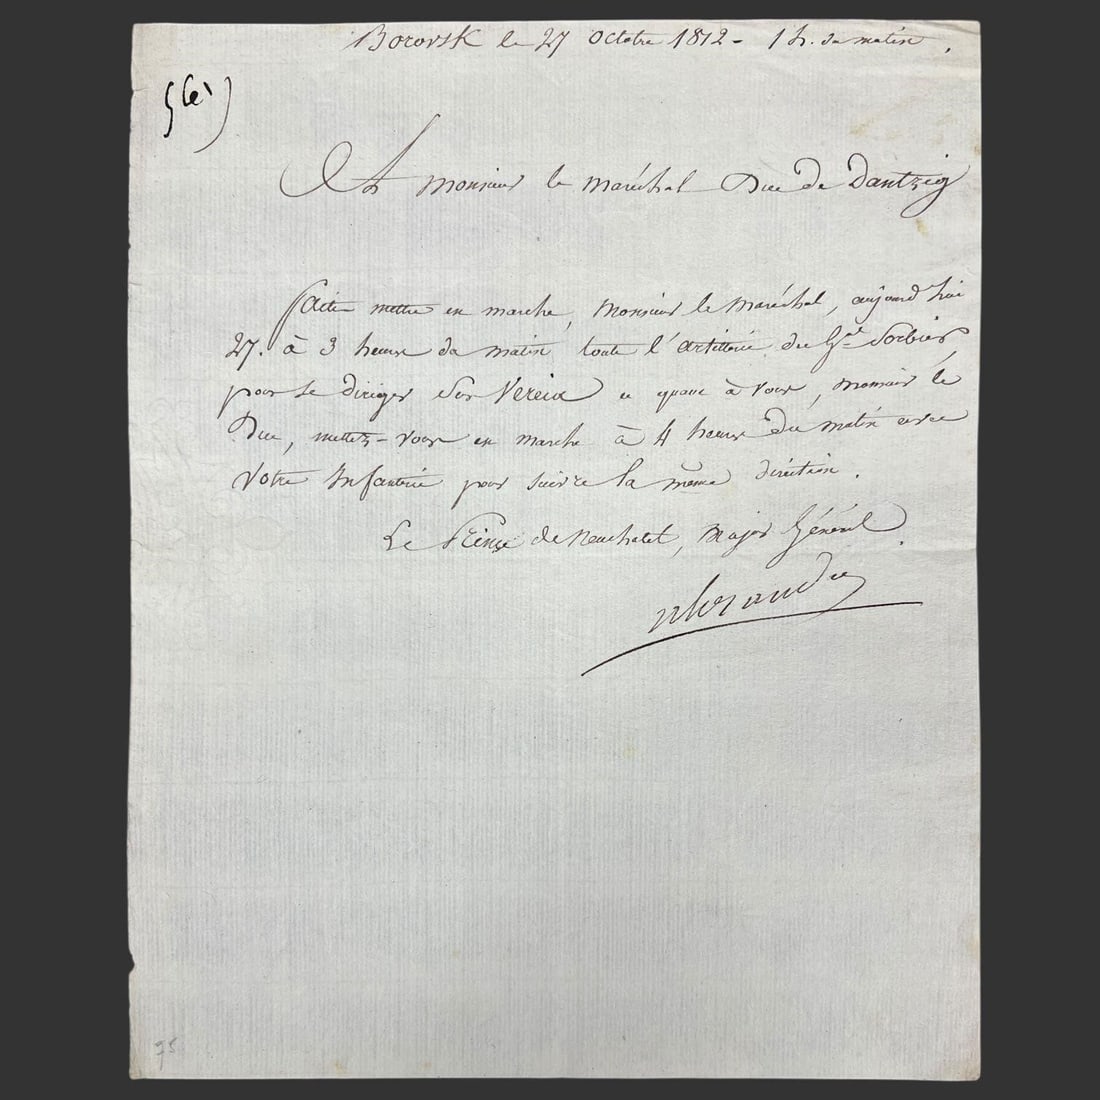 Borovsk le 27 octobre 1812 - 1 h. du matin.
A Monsieur le Maréchal Duc de Dantzig
faites mettre en marche, Monsieur le Maréchal, aujourd'hui
27. à 3 heures du matin toute l'artillerie du Gal Sorbier,
pour se diriger sur Vereia et quant à vous, Monsieur le
Duc, mettez-vous en marche à 4 heures du matin avec
votre Infanterie pour suivre la même direction.
Le Prince de Neuchatel, Major Général.
Alexandre
95